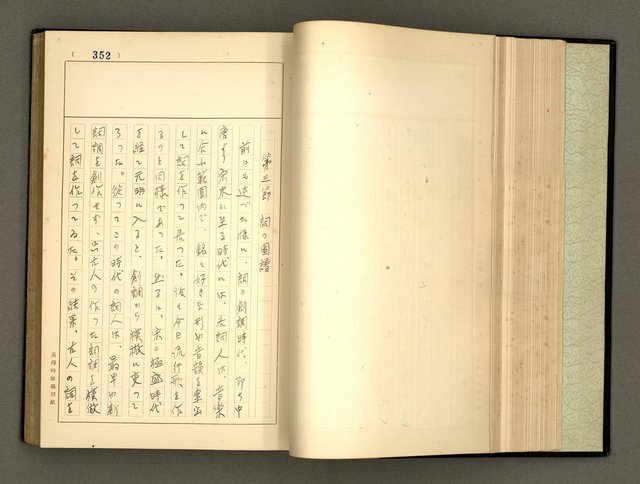 (352)
第三節 詞の図譜
前にも述べた様に、詞の創調時代、即ち中
唐より宋末に至る時代には、各詞人は、音楽
に合ふ範囲内で、銘々好きな形や音韻を案出
して詞を作つて居つた。恰も今日流行歌を作
るのと同様であつた。然るに、宋の極盛時代
を経て元明に入ると、創調から模倣に変つて
行つた。従つてこの時代の詞人は、最早や新
詞調を創作せず、只古人の作つた詞調を模倣
して詞を作つてゐた。その結果、古人の詞を
黄得時原稿用紙